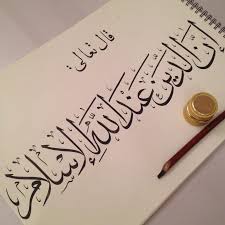 قال تعالى
إن الدين عند الله الإسلام